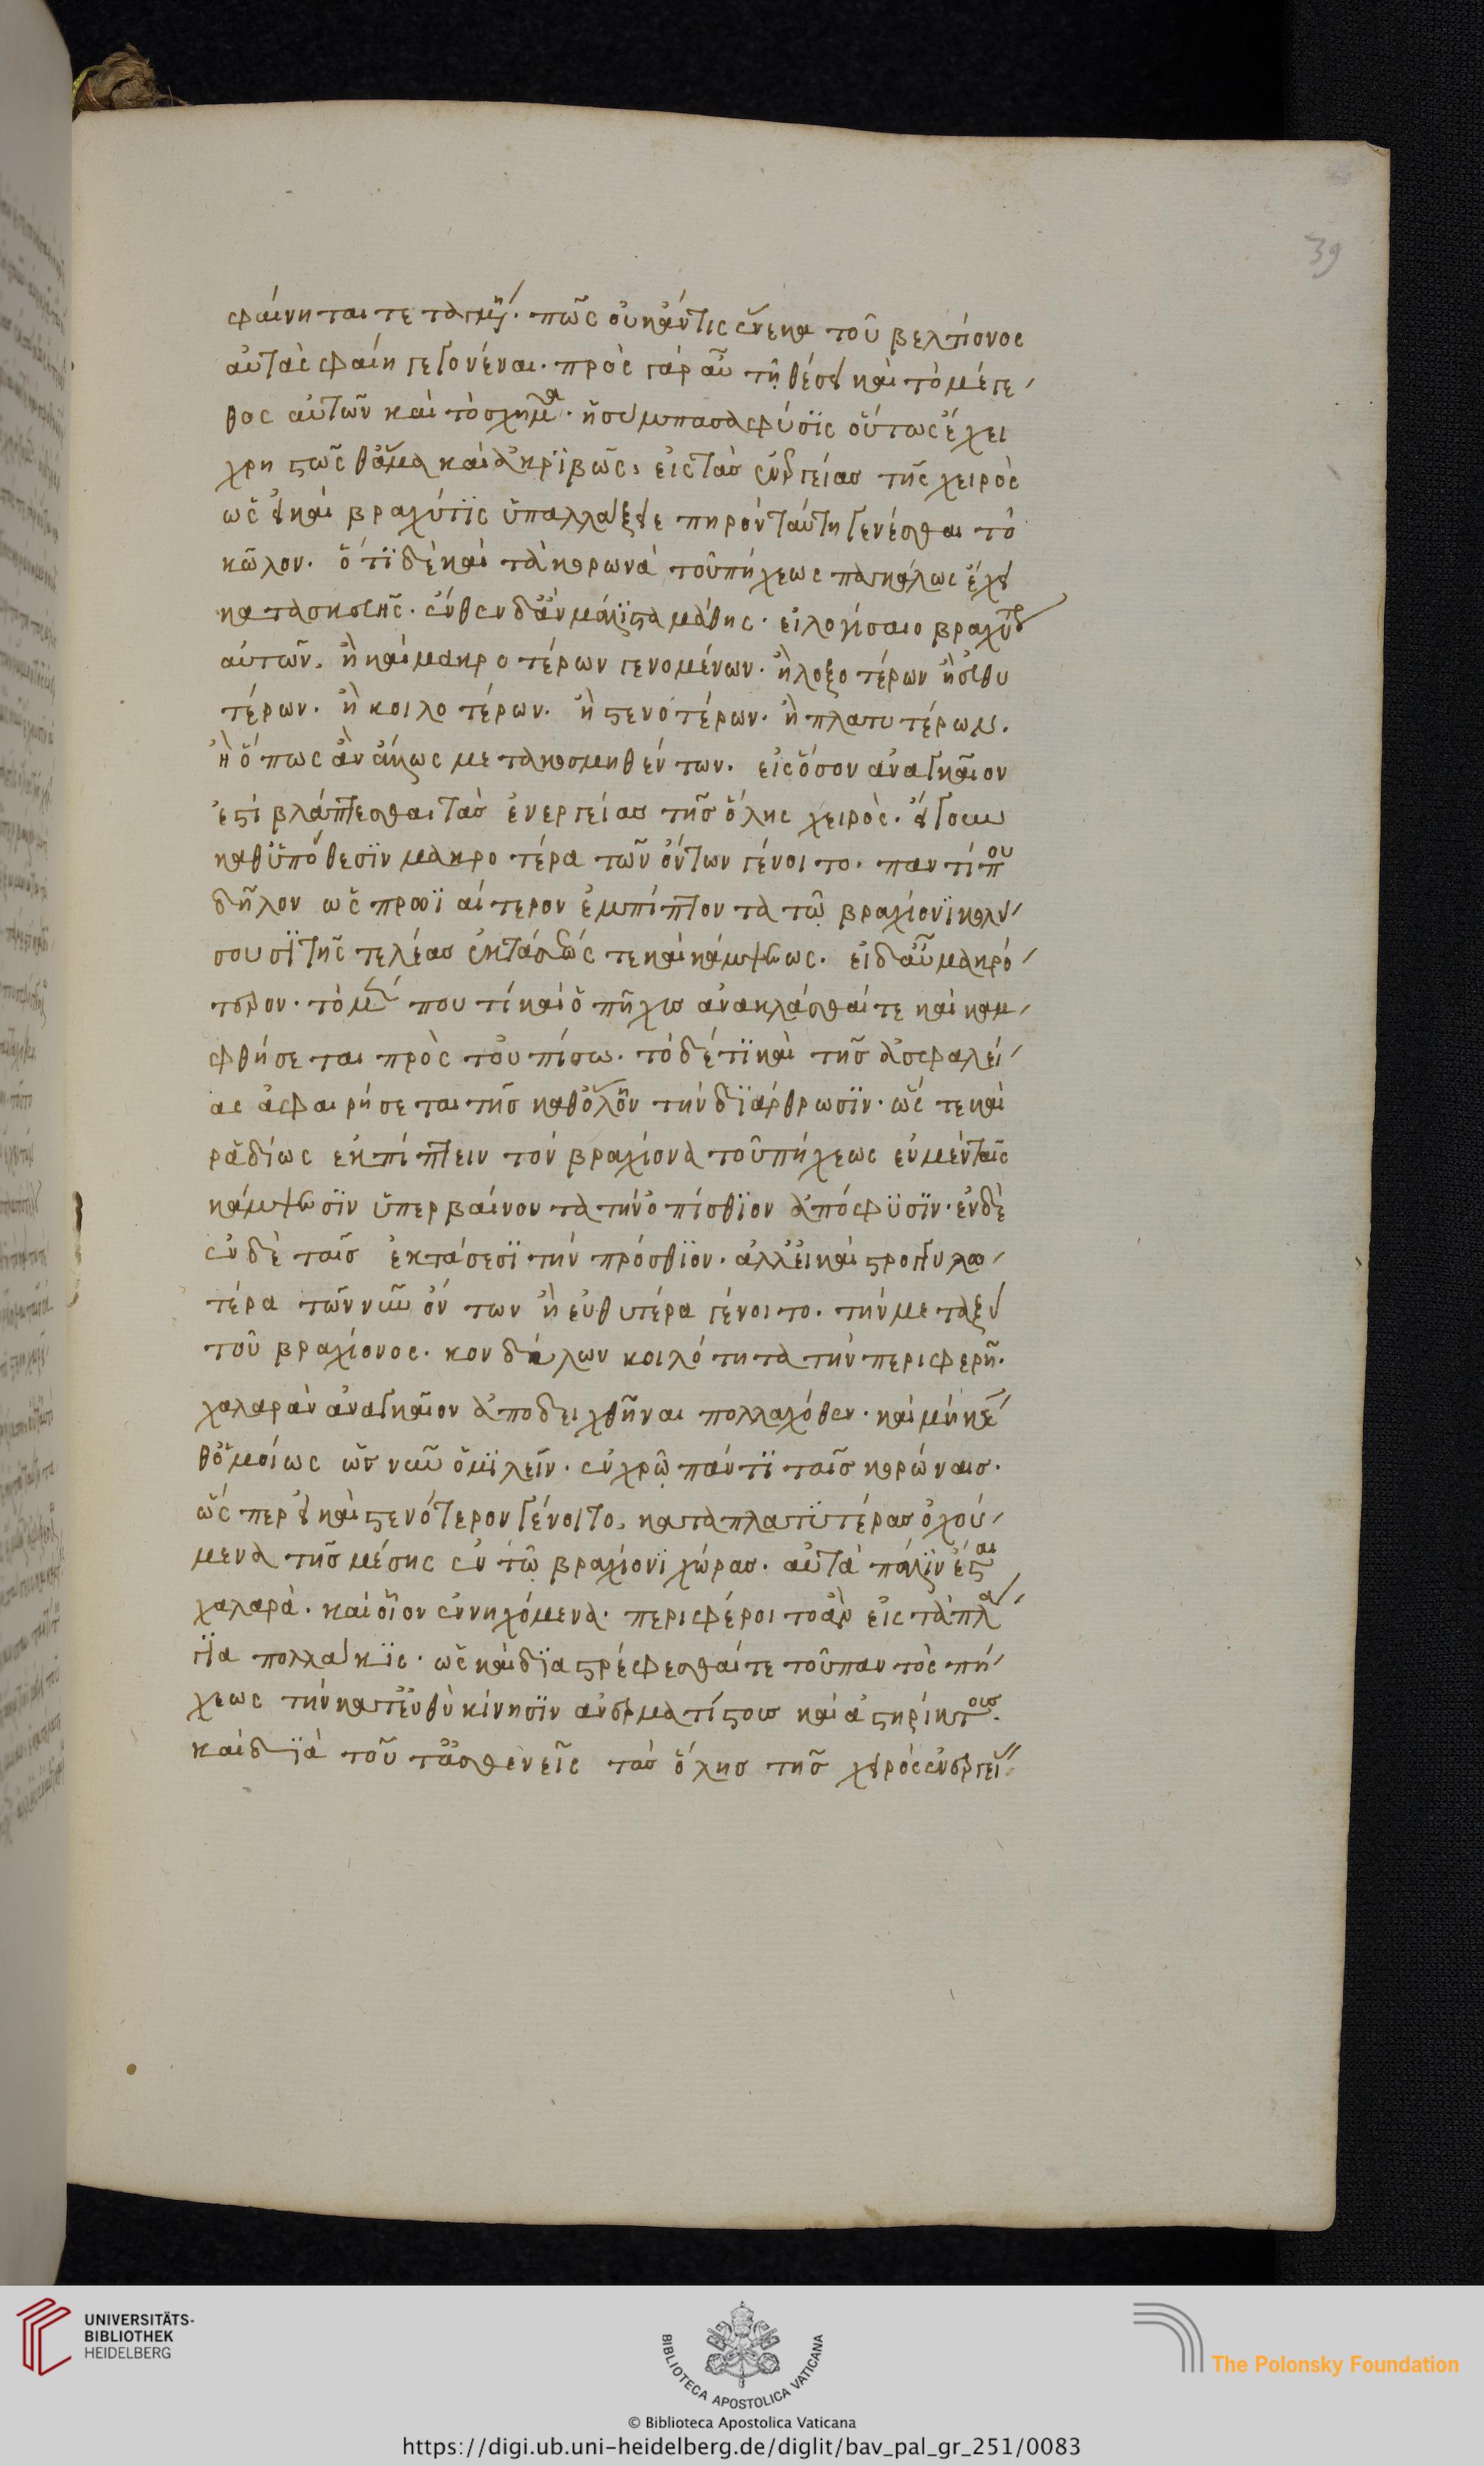 39
φαίνηται τεταγμέν. πῶς οὐκ ἄν τις ἕνεκα τοῦ βελτίονος
αὐτὰς φαίη γεγονέναι. πρὸς γὰρ αὖ τῇ θέσει καὶ τὸ μέγε
θος αὐτῶν καὶ τὸ σχῆμα. ἡ σύμπασα φύσϊς οὕτως ἔχει
χρηστῶς θ' ἅμα καὶ ἀκρϊβῶς, εἰς τὰς ἐνεργείας τῆς χειρὸς
ὡς εἰ καὶ βραχύ τϊς ὑπαλλάξειε πηρὸν ταύτῃ γενέσθαι τὸ
κῶλον. ὅτϊ δὲ καὶ τὰ κορωνὰ τοῦ πήχεως παγκάλως ἔχει
κατασκευῆς. ἐνθένδ' ἂν μάλϊστα μάθης. εἰ λογίσαιο βραχυτέρ
αὐτῶν, ἢ καὶ μακροτέρων γενομένων. ἢ λοξοτέρων ἢ εὐθυ
τέρων. ἢ κοιλοτέρων. ἢ στενοτέρων. ἢ πλατυτέρων.
ἢ ὅπως ἂν ἄλλως μετακοσμηθέντων. εἰς ὅσον ἀναγκαῖον
ἐστὶ βλάπτεσθαι τὰς ἐνεργείας τῆς ὅλης χειρός. εἴ γοῦν
καθ' ὑπόθεσϊν μακροτέρα τῶν ὄντων γένοιτο. παντί που
δῆλον ὡς πρωϊαίτερον ἐμπίπτοντα τῷ βραχίονϊ κωλύ
σουσϊ τῆς τελέας ἐκτάσεώς τε καὶ κάμψεως. εἰ δ' αὖ μακρό
τερον. τὸ μέν που τί καὶ ὁ πῆχυς ἀνακλάσθαί τε καὶ καμ
φθήσεται πρὸς τοὐπίσω. τὸ δέ τϊ καὶ τῆς ἀσφαλεί
ας ἀφαιρήσεται τῆς καθ' ὅλην τὴν δϊάρθρωσϊν. ὥς τε καὶ
ῥαδίως ἐκπίπτειν τὸν βραχίονα τοῦ πήχεως ἐν μὲν ταῖς
κάμψεσϊν ὑπερβαίνοντα τὴν ὀπίσθϊον ἀπόφϋσϊν. ἐν δὲ
ἐν δὲ ταῖς ἐκτάσεσϊ τὴν πρόσθϊον. ἀλλ' εἰ καὶ στρογγυλω
τέρα τῶν νῦν ὄντων ἢ εὐθυτέρα γένοιτο. τὴν μεταξὺ
τοῦ βραχίονος. κονδύλων κοιλότητα τὴν περιφερῆ.
χαλαρὰν ἀναγκαῖον ἀποδειχθῆναι πολλαχόθεν. καὶ μὴ κέ
θ' ὁμοίως ὡς νῦν ὁμϊλεῖν. ἐν χρῷ πάντϊ ταῖς κορώναις.
ὥς περ εἰ καὶ στενότερον γένοιτο, κατὰ πλατϋτέρας ὀχού
μενα τῆς μέσης ἐν τῷ βραχίονϊ χώρας. αὐτὰ πάλϊν ἔσται
χαλαρὰ. καὶ οἷον ἐννηχόμενα. περιφέροιτο ἂν εἰς τὰ πλά
γϊα πολλάκϊς. ὡς καὶ δϊαστρέφεσθαί τε τοῦ παντὸς πή
χεως τὴν κατ' εὐθὺ κίνησϊν ἀνερματίστοις καὶ ἀστηρίκτοις.
καὶ δϊὰ τοῦτ' ἀσθενεῖς τὰς ὅλης τῆς χειρὸς ἐνεργεί
UNIVERSITÄTS-
BIBLIOTHEK
HEIDELBERG
BIBLIOTECA APOSTOLICA VATICANA
The Polonsky Foundation
© Biblioteca Apostolica Vaticana
https://digi.ub.uni-heidelberg.de/diglit/bav_pal_gr_251/0083